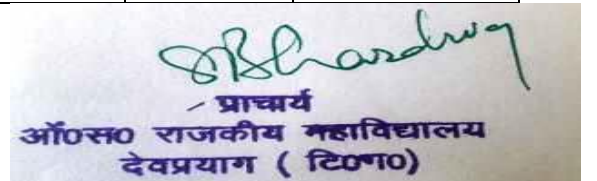 Bhardwaj
प्राचार्य
ओं०स० राजकीय महाविद्यालय
देवप्रयाग ( टि०ग०)